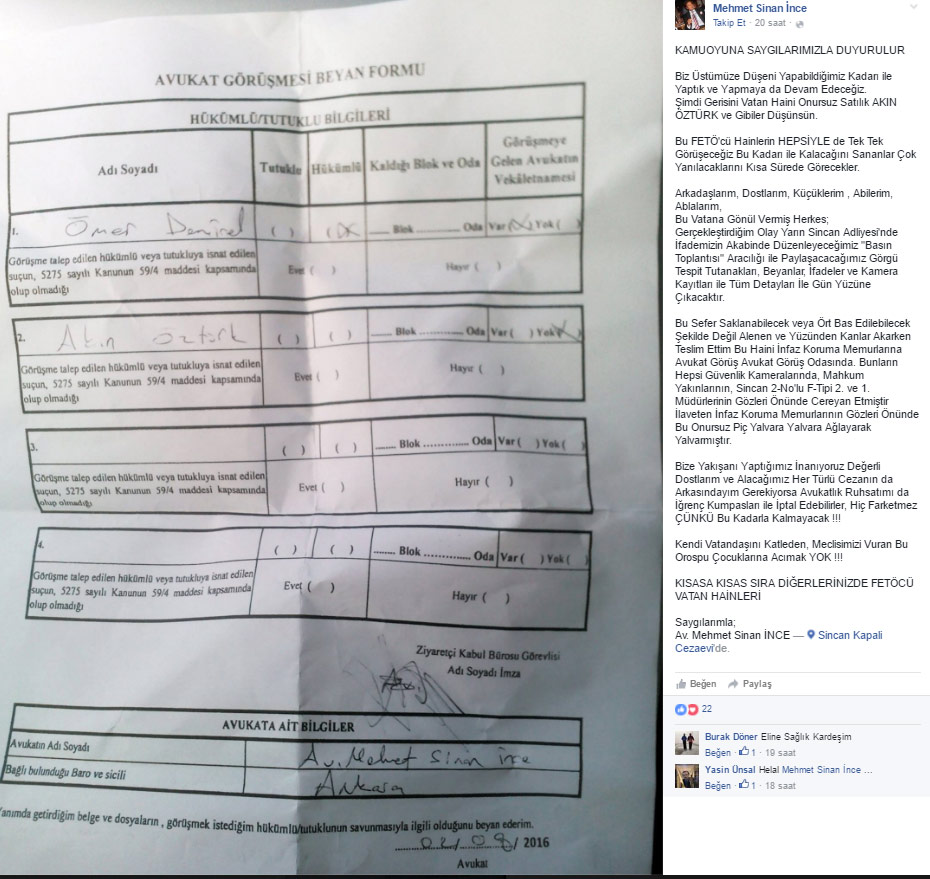 AVUKAT GÖRÜŞMESİ BEYAN FORMU
HÜKÜMLÜ/TUTUKLU BİLGİLERİ
Adı Soyadı
Tutuklu
Hükümlü
Kaldığı Blok ve Oda
Görüşmeye
Gelen Avukatın
Vekâletnamesi
1. Ömer Demirel ( ) (X ..... Blok ............ Oda Var (X) Yok ( )
Görüşme talep edilen hükümlü veya tutukluya isnat edilen
suçun, 5275 sayılı Kanunun 59/4 maddesi kapsamında
olup olmadığı
Evet ( )
Hayır ( )
2. Akın Öztürk ( ) ( ) ....... Blok ............ Oda Var ( ) Yok X
Görüşme talep edilen hükümlü veya tutukluya isnat edilen
suçun, 5275 sayılı Kanunun 59/4 maddesi kapsamında
olup olmadığı
Evet ( )
Hayır ( )
3. ( ) ( ) ....... Blok ............ Oda Var ( ) Yok ( )
Görüşme talep edilen hükümlü veya tutukluya isnat edilen
suçun, 5275 sayılı Kanunun 59/4 maddesi kapsamında
olup olmadığı
Evet ( )
Hayır ( )
4. ( ) ( ) ....... Blok ............ Oda Var ( ) Yok ( )
Görüşme talep edilen hükümlü veya tutukluya isnat edilen
suçun, 5275 sayılı Kanunun 59/4 maddesi kapsamında
olup olmadığı
Evet ( )
Hayır ( )
Ziyaretçi Kabul Bürosu Görevlisi
Adı Soyadı İmza
AVUKATA AİT BİLGİLER
Avukatın Adı Soyadı
Av. Mehmet Sinan İnce
Bağlı bulunduğu Baro ve sicili
Ankara
Yanımda getirdiğim belge ve dosyaların , görüşmek istediğim hükümlü/tutuklunun savunmasıyla ilgili olduğunu beyan ederim.
/ 2016
Avukat
Mehmet Sinan İnce
Takip Et · 20 saat ·
KAMUOYUNA SAYGILARIMIZLA DUYURULUR
Biz Üstümüze Düşeni Yapabildiğimiz Kadarı ile
Yaptık ve Yapmaya da Devam Edeceğiz.
Şimdi Gerisini Vatan Haini Onursuz Satılık AKIN
ÖZTÜRK ve Gibiler Düşünsün.
Bu FETÖ'cü Hainlerin HEPSİYLE de Tek Tek
Görüşeceğiz Bu Kadarı ile Kalacağını Sananlar Çok
Yanılacaklarını Kısa Sürede Görecekler.
Arkadaşlarım, Dostlarım, Küçüklerim , Abilerim,
Ablalarım,
Bu Vatana Gönül Vermiş Herkes;
Gerçekleştirdiğim Olay Yarın Sincan Adliyesi'nde
İfademizin Akabinde Düzenleyeceğimiz "Basın
Toplantısı" Aracılığı ile Paylaşacacağımız Görgü
Tespit Tutanakları, Beyanlar, İfadeler ve Kamera
Kayıtları ile Tüm Detayları İle Gün Yüzüne
Çıkacaktır.
Bu Sefer Saklanabilecek veya Ört Bas Edilebilecek
Şekilde Değil Alenen ve Yüzünden Kanlar Akarken
Teslim Ettim Bu Haini İnfaz Koruma Memurlarına
Avukat Görüş Avukat Görüş Odasında. Bunların
Hepsi Güvenlik Kameralarında, Mahkum
Yakınlarının, Sincan 2-No'lu F-Tipi 2. ve 1.
Müdürlerinin Gözleri Önünde Cereyan Etmiştir
İlaveten İnfaz Koruma Memurlarının Gözleri Önünde
Bu Onursuz Piç Yalvara Yalvara Ağlayarak
Yalvarmıştır.
Bize Yakışanı Yaptığımız İnanıyoruz Değerli
Dostlarım ve Alacağımız Her Türlü Cezanın da
Arkasındayım Gerekiyorsa Avukatlık Ruhsatımı da
İğrenç Kumpasları ile İptal Edebilirler, Hiç Farketmez
ÇÜNKÜ Bu Kadarla Kalmayacak !!!
Kendi Vatandaşını Katleden, Meclisimizi Vuran Bu
Orospu Çocuklarına Acımak YOK !!!
KISASA KISAS SIRA DİĞERLERİNİZDE FETÖCÜ
VATAN HAİNLERİ
Saygılarımla;
Av. Mehmet Sinan İNCE — Sincan Kapali
Cezaevi'de.
Beğen Paylaş
22
Burak Döner Eline Sağlık Kardeşim
Beğen · 1 · 19 saat
Yasin Ünsal Helal Mehmet Sinan İnce ...
Beğen · 1 · 18 saat